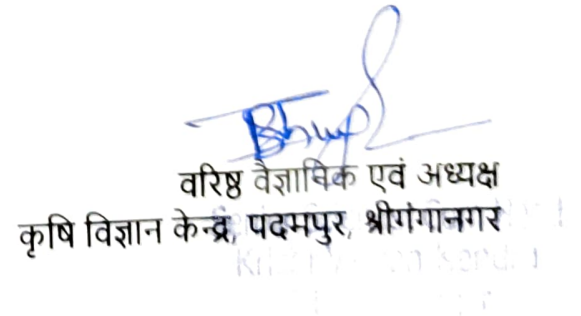 वरिष्ठ वैज्ञानिक एवं अध्यक्ष
कृषि विज्ञान केन्द्र, पदमपुर, श्रीगंगानगर